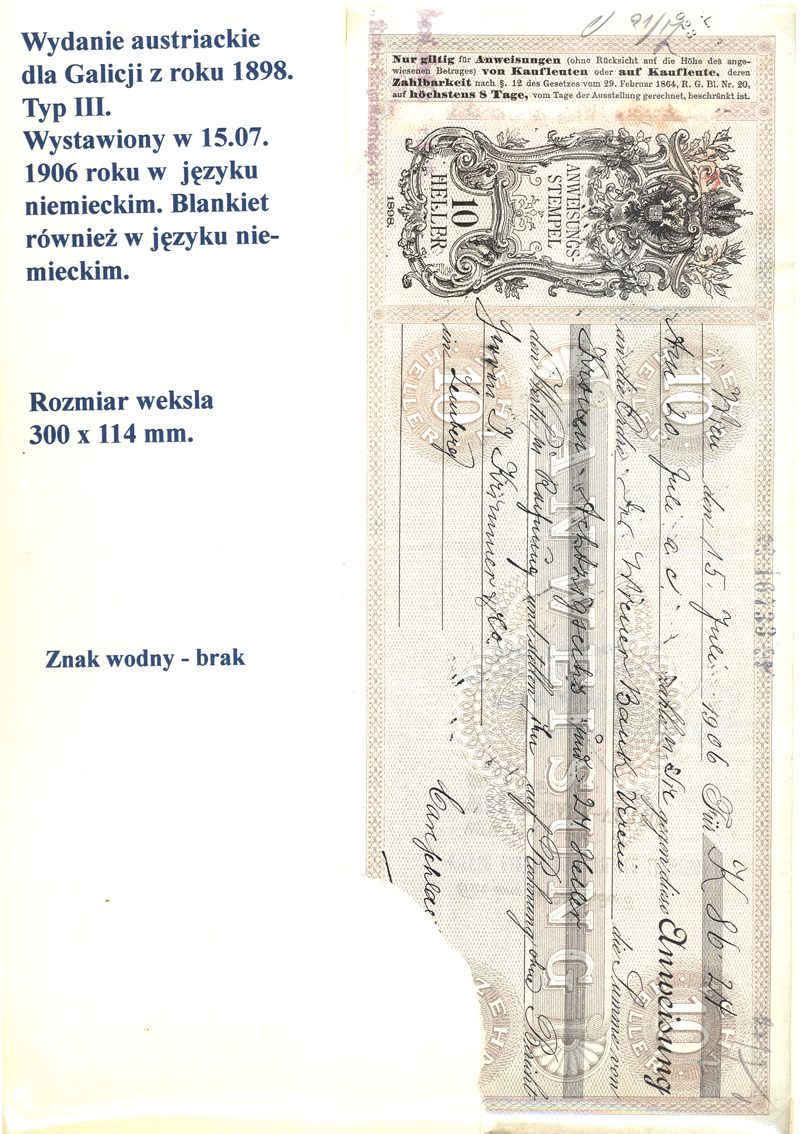 Wydanie austriackie
dla Galicji z roku 1898.
Typ III.
Wystawiony w 15.07.
1906 roku w języku
niemieckim. Blankiet
również w języku nie-
mieckim.
Rozmiar weksla
300 x 114 mm.
Znak wodny - brak
Nur giltig für Anweisungen (ohne Rücksicht auf die Höhe des ange-
wiesenen Betrages) von Kaufleuten oder auf Kaufleute, deren
Zahlbarkeit nach §. 12 des Gesetzes vom 29. Februar 1864, R. G. Bl. Nr. 20,
auf höchstens 8 Tage, vom Tage der Ausstellung gerechnet, beschränkt ist.
ANWEISUNGS
STEMPEL
10
HELLER
1898.
Wien den 15. Juli 1906 Für K 86.24
Am 20 Juli a.c. zahlen Sie gegen diese Anweisung
an die Ordre Wiener Bank Verein die Summe von
Kronen Achtzigsechs und 24 Heller
den Werth in Rechnung und stellen ihn auf Rechnung ohne Bericht
Krämmer & Co.
in Lemberg
ANWEISUNG
ZEHN
10
HELLER
ZEHN
10
HELLER
ZEHN
10
HELLER
ZEHN